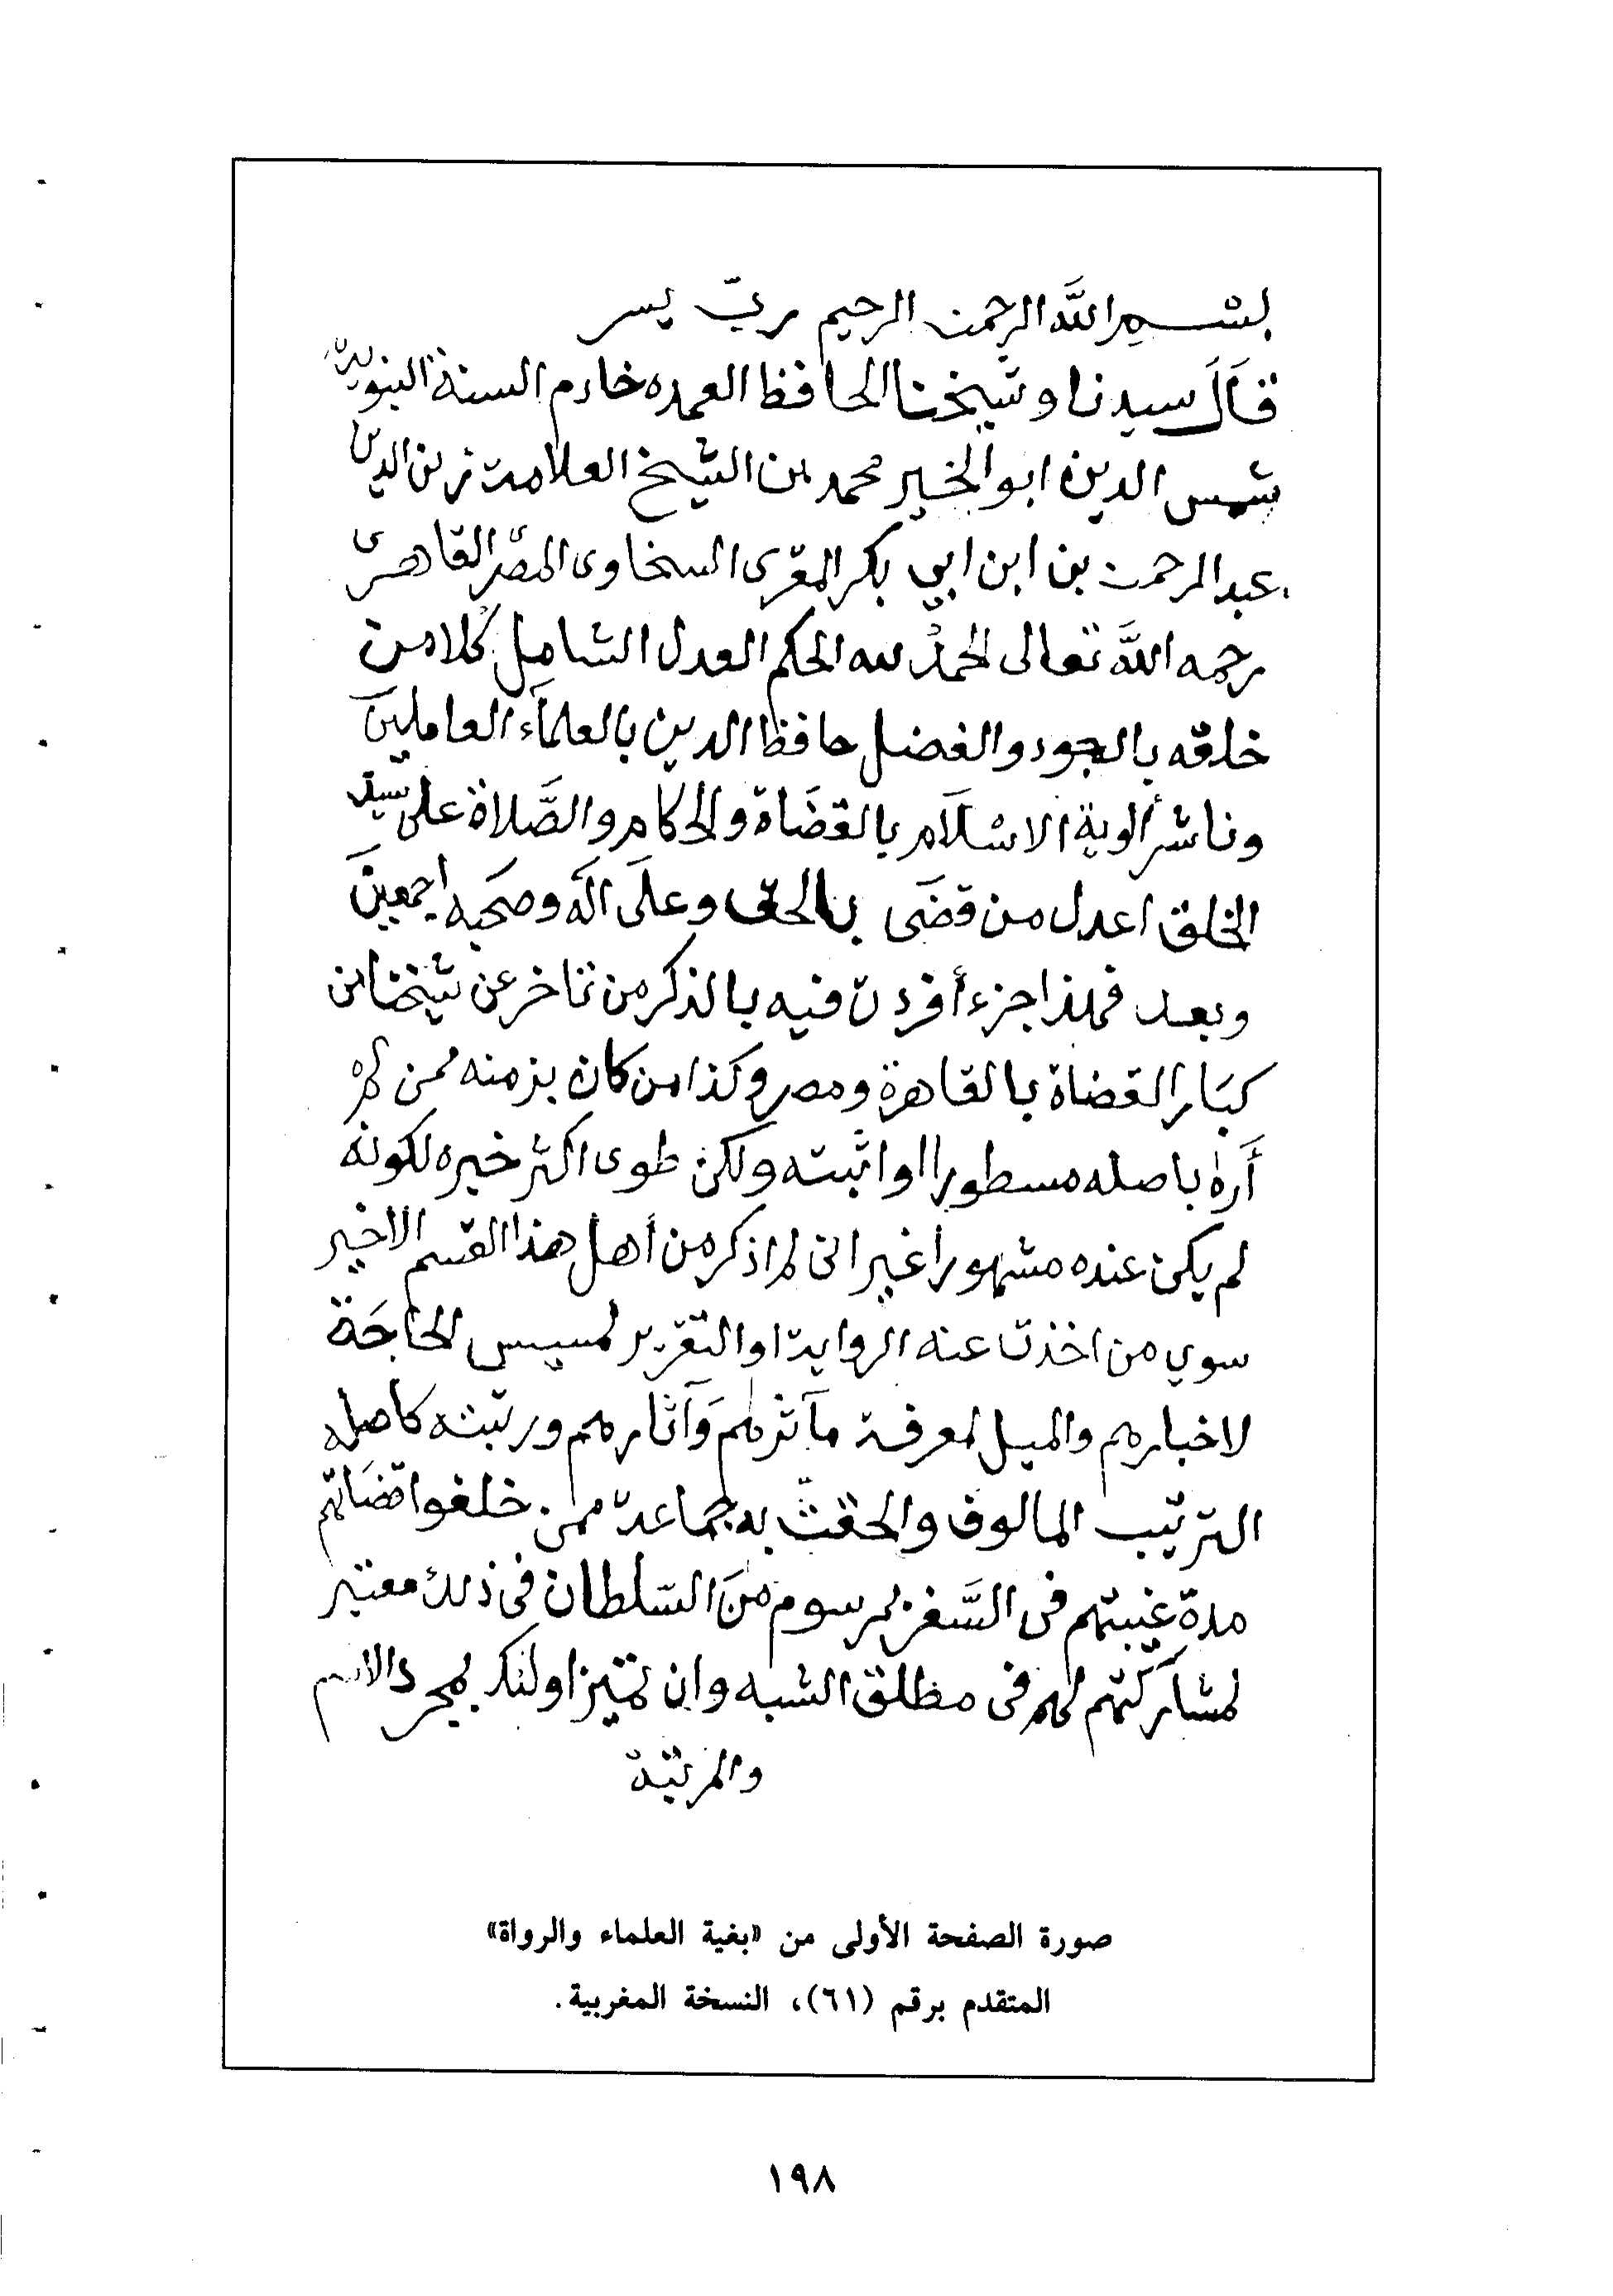 بسم الله الرحمن الرحيم رب يسر
قال سيدنا وشيخنا الحافظ العمده خادم السنة النبوية
شمس الدين ابو الخير محمد بن الشيخ العلامة زين الدين
عبد الرحمن بن ابن ابي بكر المقرى السخاوى المصرى القاهرى
رحمه الله تعالى الحمد لله الحكم العدل الشامل كلا من
خلقه بالجود والفضل حافظ الدين بالعلماء العاملين
وناشر ألوية الاسلام بالقضاة والحكام والصلاة على سيد
الخلق اعدل من قضى بالحق وعلى اله وصحبه اجمعين
وبعد فهذا جزء أفردت فيه بالذكر من تاخر عن شيخنا من
كبار القضاة بالقاهرة ومصر وكذا من كان بزمنه ممن لم
أره باصله مسطورا او اثبته ولكن طوى اكثر خبره لكونه
لم يكن عنده مشهورا غير انى لم اذكر من أهل هذا القسم الاخير
سوي من اخذت عنه الرواية او التقرير لمسيس الحاجة
لاخبارهم والميل لمعرفة مآثرهم وآثارهم ورتبته كاصله
الترتيب المالوف والحقت به جماعة ممن خلفوا قضاتهم
مدة غيبتهم فى السفر بمرسوم من السلطان فى ذلك معتبر
لمشاركتهم لهم فى مطلق الشبه وان تميز اولئك بمجرد الاسم
والمرتبة
صورة الصفحة الأولى من «بغية العلماء والرواة»
المتقدم برقم (٦١)، النسخة المغربية.
١٩٨